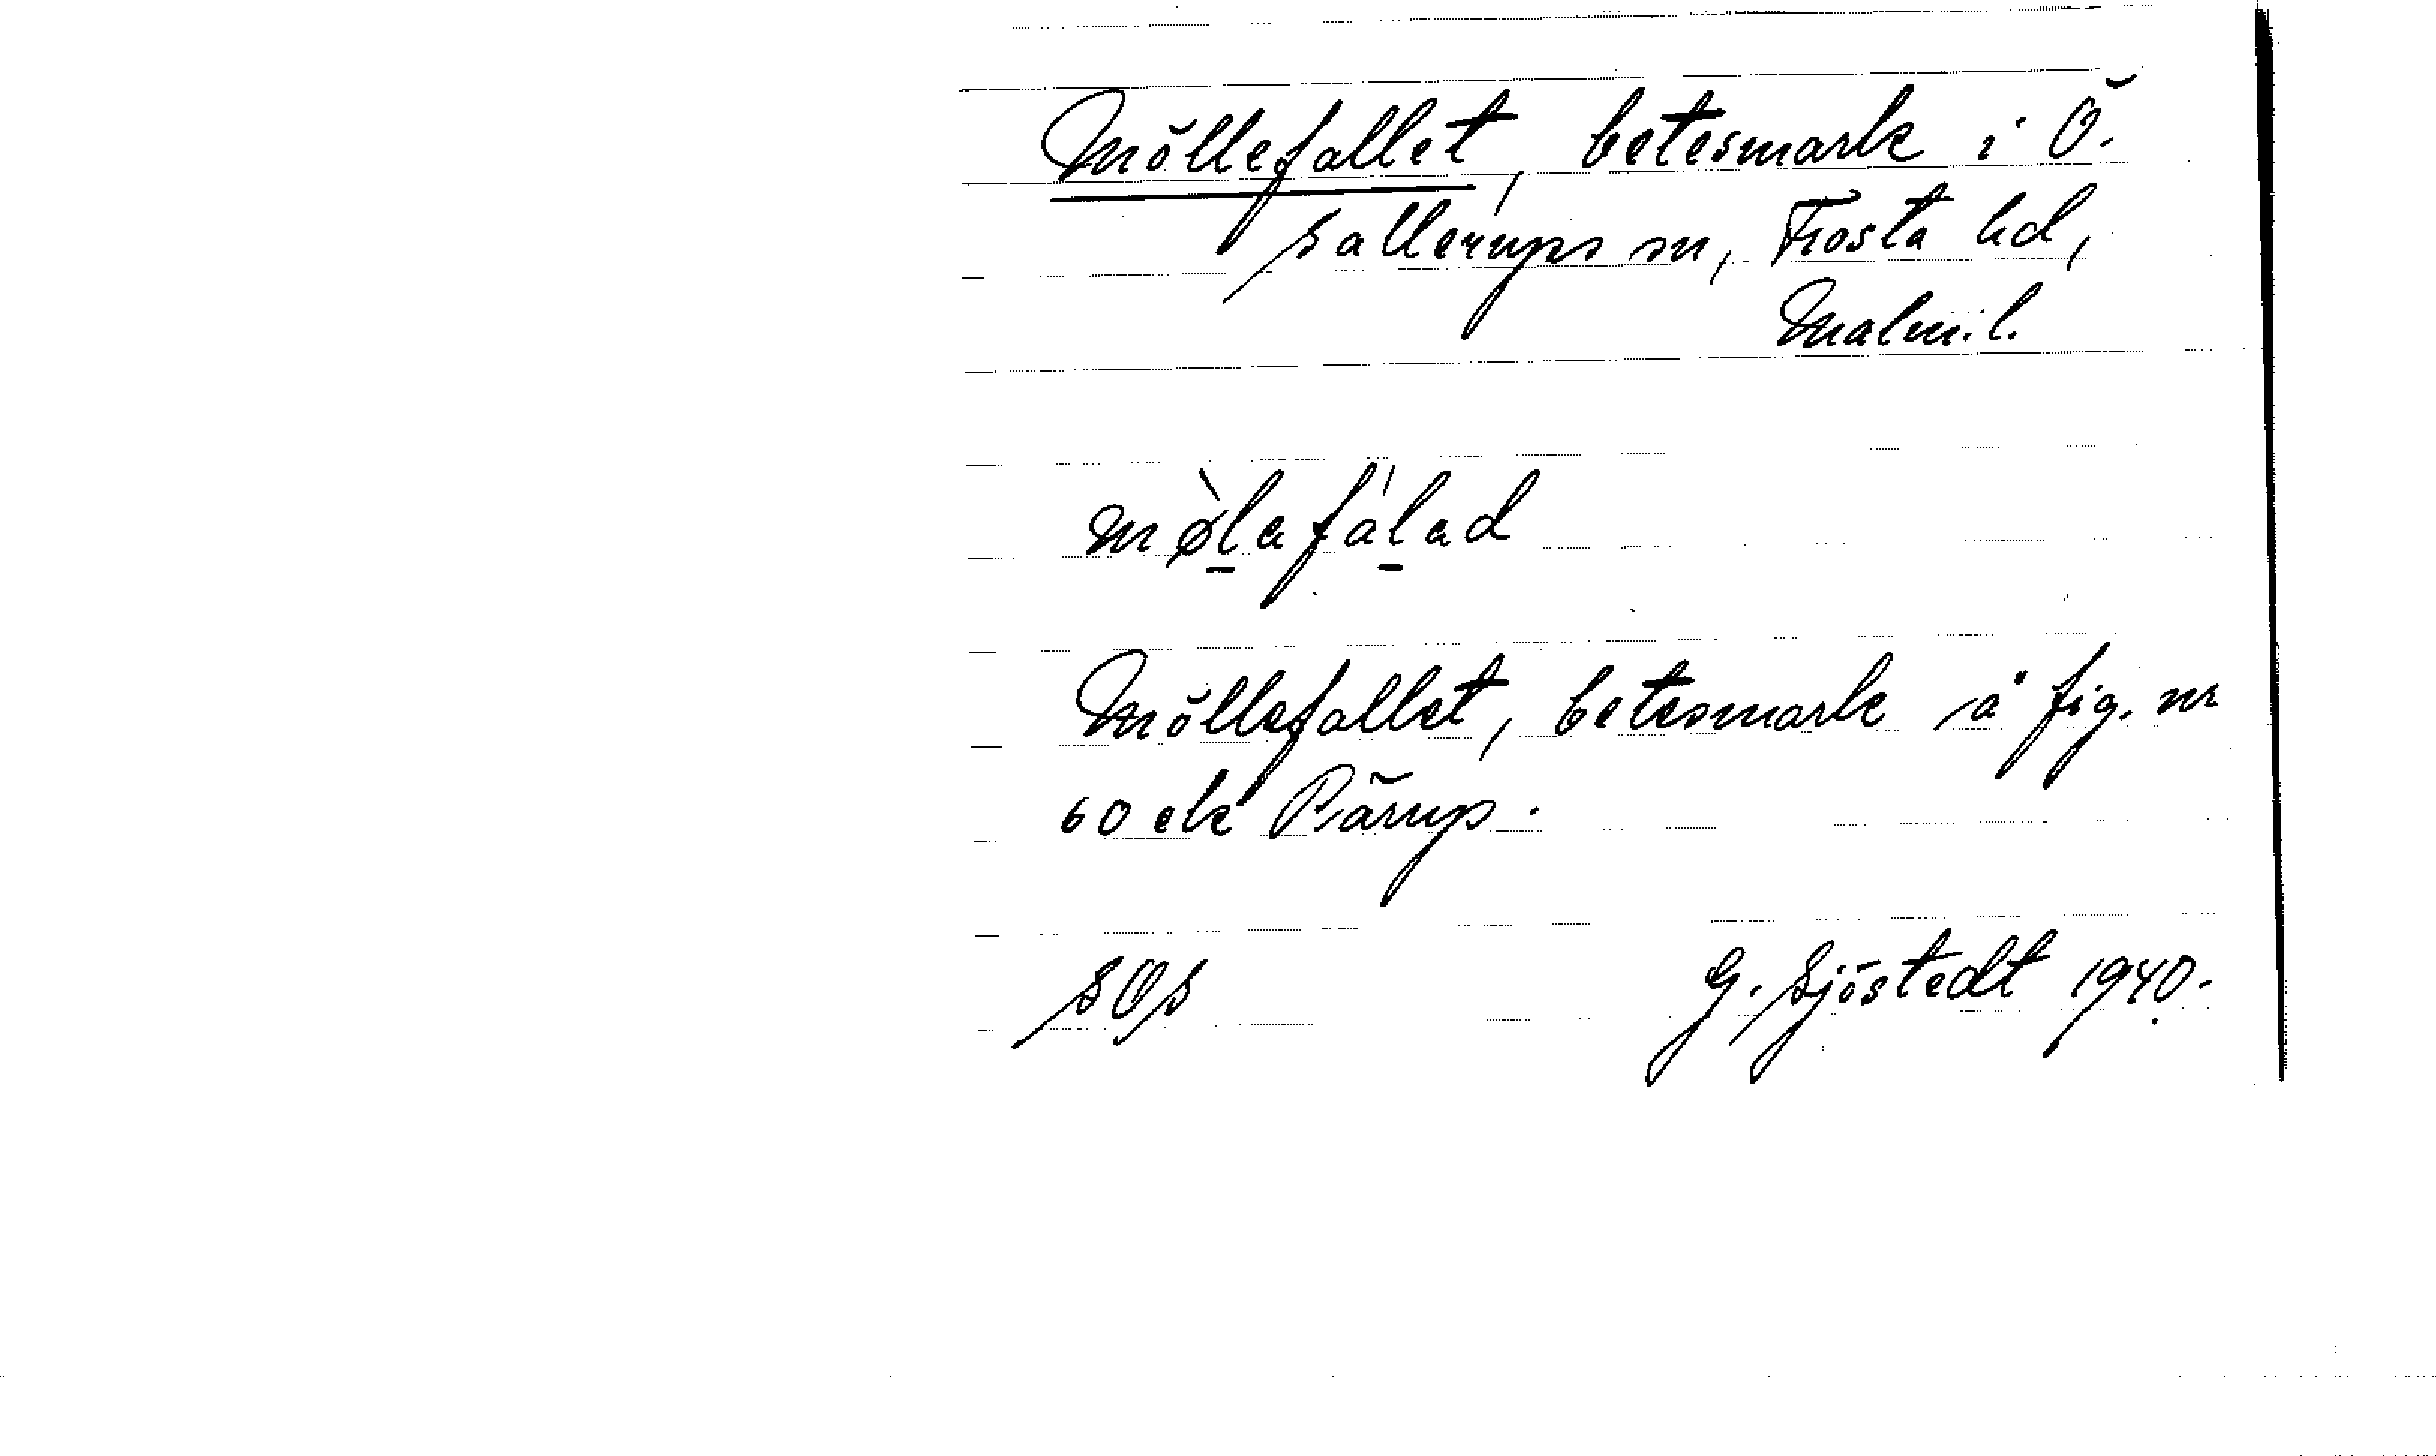 Möllefallet, betesmark i Ö.
Sallerups sn, Frosta hd,
Malm.l.
mø̀l̠afál̠ad
Möllefallet, betesmark å fig. nr
60 ek Pärup.
SOS G. Sjöstedt 1940.